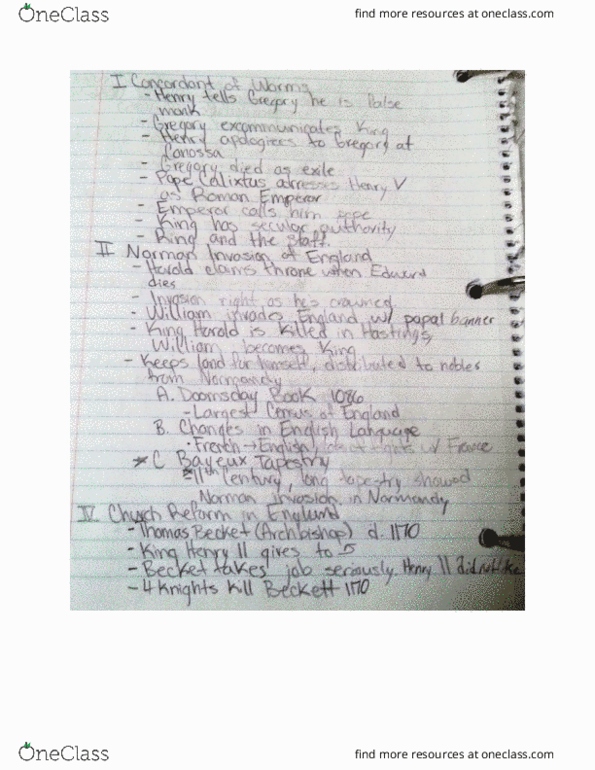 OneClass
find more resources at oneclass.com
I Concordant of Worms
- Henry tells Gregory he is false
monk
- Gregory excommunicates King
- Henry apologizes to Gregory at
Canossa
- Gregory died as exile
- Pope Calixtus adresses Henry V
as Roman Emperor
- Emperor calls him pope
- King has secular authority
- Ring and the staff.
II Norman Invasion of England
- Harold claims throne when Edward
dies
- Invasion right as he's crowned
- William invades England w/ papal banner
- King Harold is killed in Hastings,
William becomes King
- Keeps land for himself, distributed to nobles
from Normandy
A. Doomsday Book 1086
- Largest Census of England
B. Changes in English Language
· French → English, w/ France
* C Bayeux Tapestry
11th Century, long tapestry showed
Norman invasion in Normandy
IV Church Reform in England
- Thomas Becket (Archbishop) d. 1170
- King Henry II gives to
- Becket takes job seriously. Henry II did not like
- 4 Knights kill Beckett 1170
OneClass
find more resources at oneclass.com